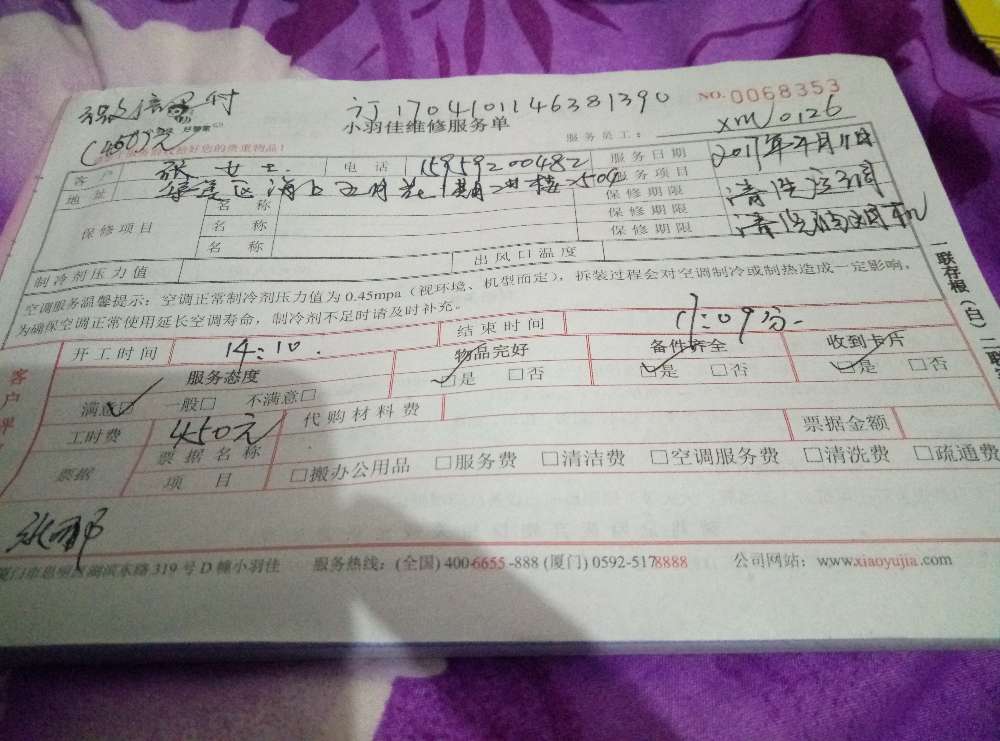 微信支付 订1704101146381390 NO.0068353
(450元) 小羽佳维修服务单 服务员工: xm/0126
给好您的贵重物品!
客户 张女士 电话 15959200482 服务日期 2017年4月11日
地址 海上五月花 2期 楼 504 服务项目 清洗空调
保修项目 名称 保修期限 清洗 机
名称 保修期限
名称 保修期限
制冷剂压力值 出风口温度
空调服务温馨提示:空调正常制冷剂压力值为0.45mpa(视环境、机型而定),拆装过程会对空调制冷或制热造成一定影响,
为确保空调正常使用延长空调寿命,制冷剂不足时请及时补充。
开工时间 14:10. 结束时间 17:09分.
服务态度 物品完好 备件齐全 收到卡片
满意☑ 一般□ 不满意□ ☑是 □否 ☑是 □否 ☑是 □否
工时费 450元 代购材料费 票据金额
票据 票据名称
项目 □搬办公用品 □服务费 □清洁费 □空调服务费 □清洗费 □疏通费
客户单
一联存根(白)二联
厦门市思明区湖滨东路319号D幢小羽佳 服务热线:(全国)400-6655-888(厦门)0592-5178888 公司网站:www.xiaoyujia.com